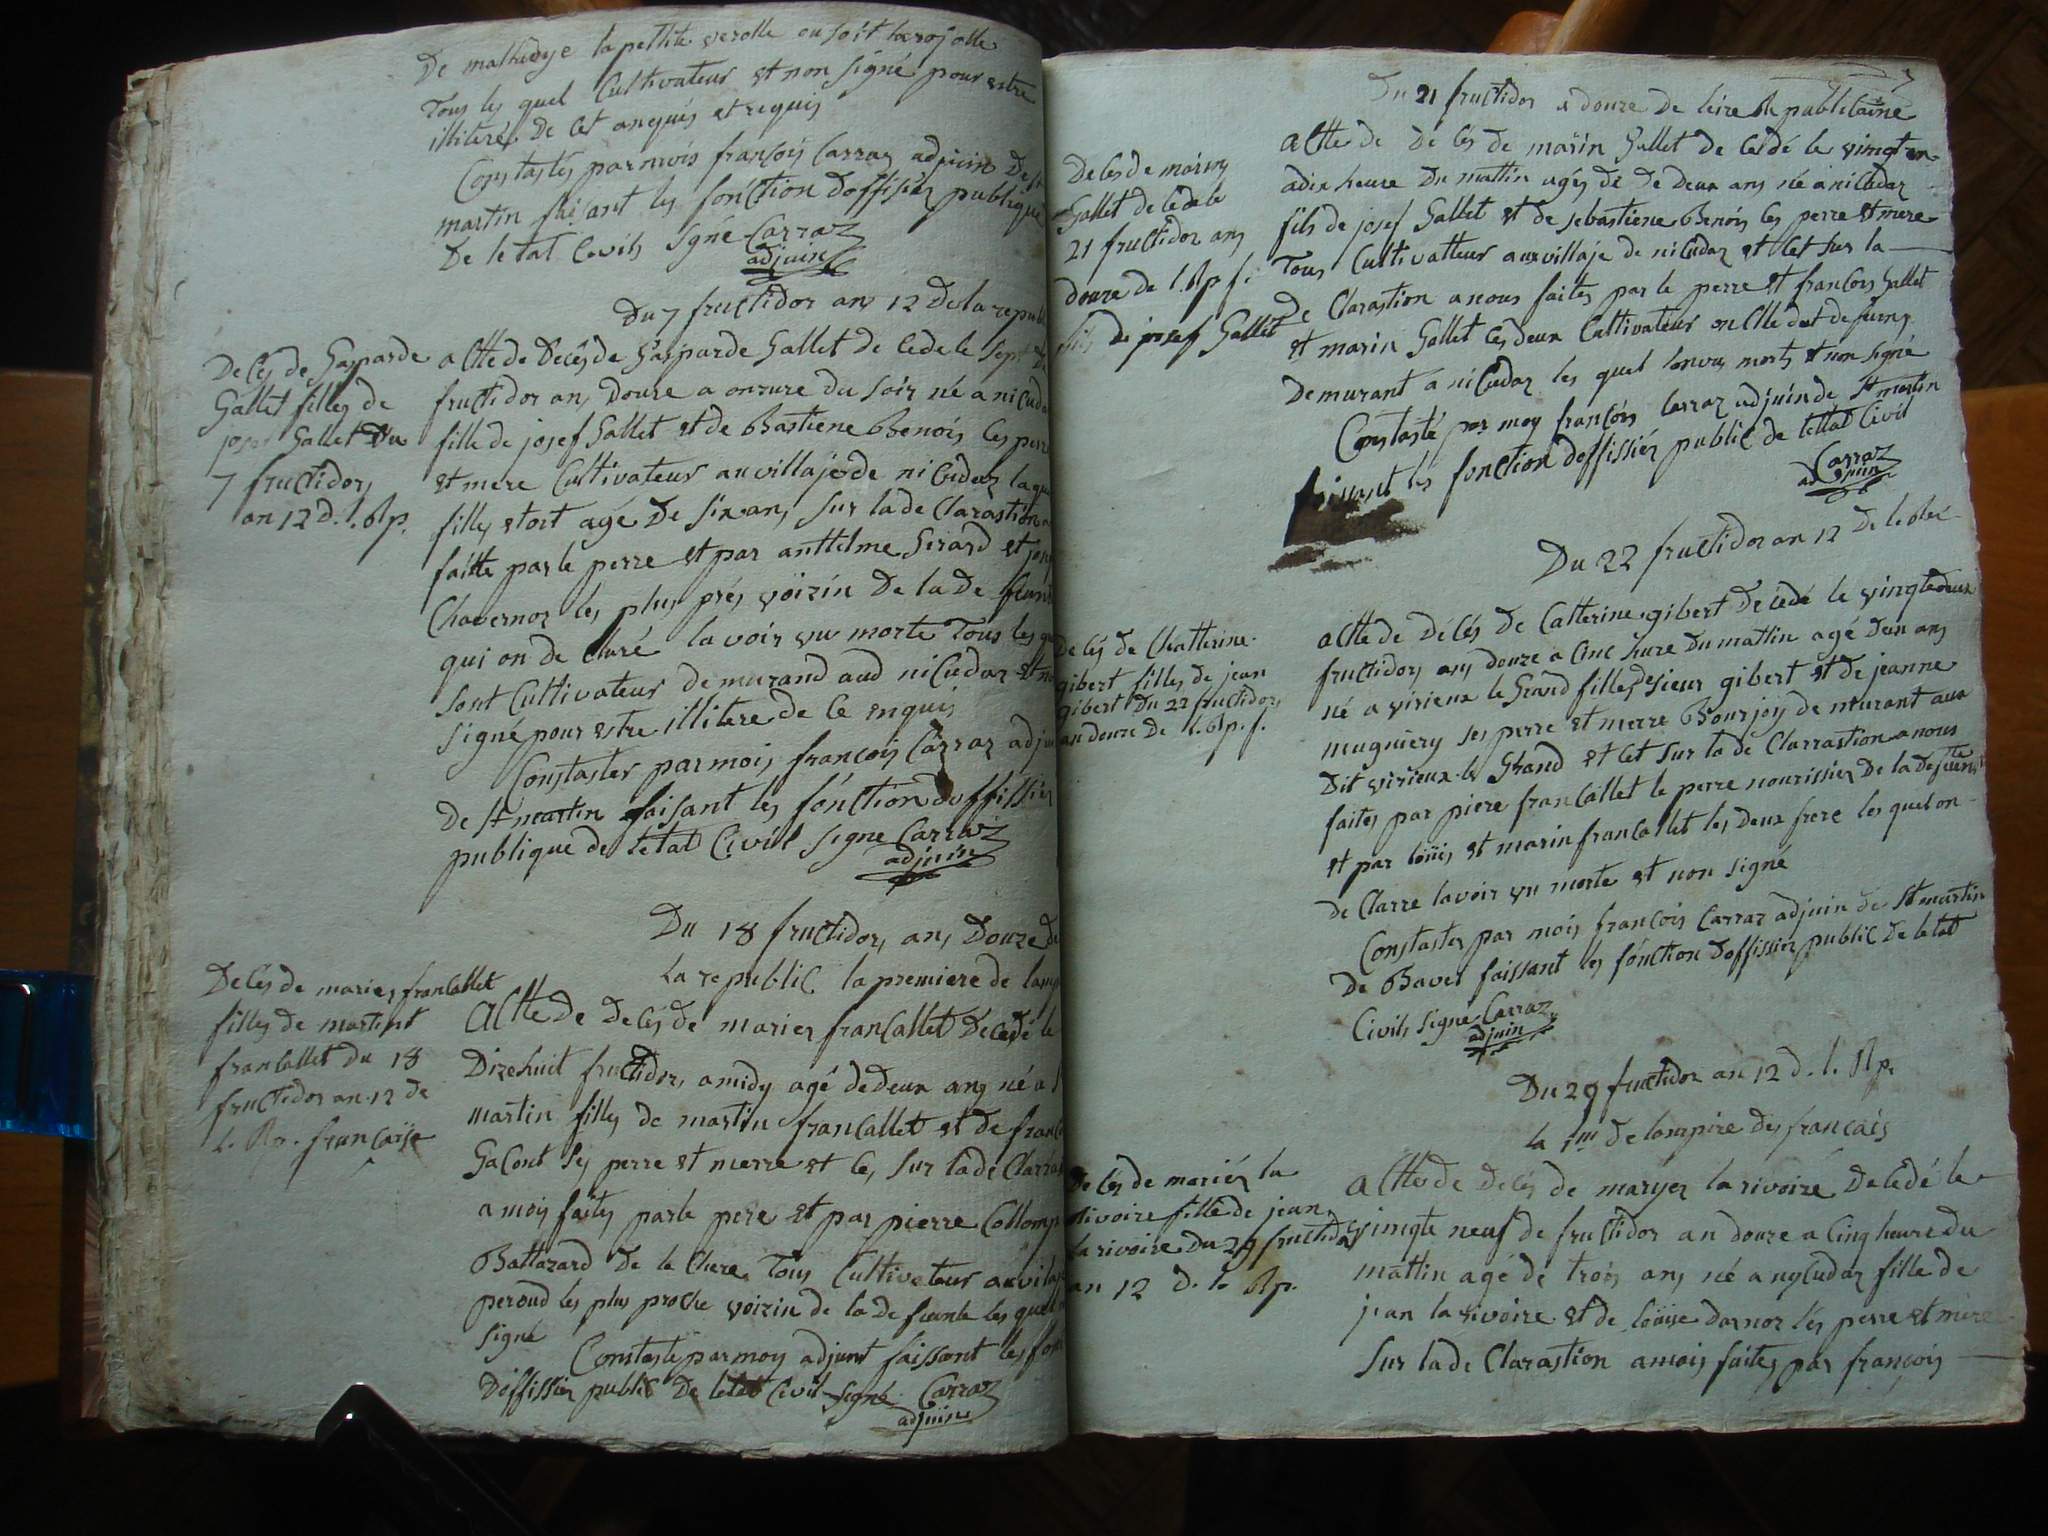 De malladye la pettite verolle ou soit la rosolle
Tous les quel Cultivateur et non signé pour estre
illiteré De cet anquis et requis
Constatés par mois françois Carraz adjuin De st
martin faisant les fonction doffisier publique
De letat Civils Signé Carraz
adjuin
Du 7 fructidor an 12 De la republ
Decés de Gasparde
Gallet filles de
josef Gallet du
7 fructidor
an 12 D. l. Rp.
actte de Decés de Gasparde Gallet de cede le sept de
fructidor an douze a onzure du soir né a nicudaz
fille de josef Gallet et de Bastiene Benois les perre
et mere Cultivateur au villaje de nicudaz la que
filles etort agé De six ans sur la de Clarastion
faitte par le perre et par anttelme Girard et
Chavernoz les plus prés voizin De la de funt
qui on de Claré lavoir vu morte Tous les que
sont Cultivateur demurand aud nicudaz et no
signé pour estre illitere de Ce enquis
Constater par mois françois Carraz adjuin
de St martin faisant les fonction doffissier
publique de letat Civil signe Carraz
adjuin
Du 18 fructidor, an, Douze de
La republic la premiere de lamp
Decés de maries francallet
filles de martint
francallet du 18
fructidor an 12 de
l. Rp. francaise
Actte de Decés de maries francallet Decedé le
Dizehuit fructidor, amidy agé de deux ans né a S
martin filles de martin francallet et de franc
Gacont ses perre et merre et les sur la de Clara
a mois faites par le pere et par pierre Collomp
Baltazard de le Chere Tous Cultivateur au vilaje
peroud les plus proche voizin de la de funte les quel
signé
Constaste par moy adjuint faissant les fon
Doffissier public De letat Civil signé Carraz
adjuin
7
Du 21 fructidor a douze de leire Republicaine
Decés de marins
Gallet de cede le
21 fructidor ans
douze de l. Rp f.
fils de josef Gallet
actte de De cés de marin Gallet de cedé le vingt un
a dix heure Du mattin agés de De Deux ans né a nicudaz
fils de josef Gallet et de sebastiene Benois les perre et mere
Tous Cultivatteur au villaje de nicudaz et cet sur la
De Clarastion a nous faites par le perre et francois Gallet
et marin Gallet les deux Cultivateur oncle dud defuns
Demurant a nicudaz les quel lonvus morts et non signé
Constasté par moy françois Carraz adjuin de St martin
faisant les fonction doffissier public de lettat Civil
Carraz
adjuin
Du 22 fructidor an 12 De le Rex
Decés de Chatterine
gibert filles de jean
gibert Du 22 fructidor
an douze De l. Rp. f.
actte de Décés de Catterine gibert decedé le vingtedeux
fructidor, ans douze a cinc hure Du mattin agé Deun ans
né a virieux le Grand filles de sieur gibert et de jeanne
mugniery ses perre et merre Bourjois demurant aux
Dit virieux le Grand et cet sur la de Clarrastion a nous
faites par piere francallet le perre nourissier De la defunte
et par loüis et marin francallet les deux frere les quel on
de Clarre lavoir vu morte et non signé
Constaster par mois françois Carraz adjuin de St martin
de Bavel faissant les fonction doffissier public De letat
Civils Signé Carraz
adjuin
Du 29 fructidor an 12 d. l. Rp.
la 1m de lampire des français
Decés de mariés la
Rivoire fille de jean
larivoire Du 29 fructidor
an 12 d. l. Rp.
actte de Decés de maryes larivoire Decedé le
vingte neuf de fructidor an douze a cinq heure du
mattin agé de trois ans né a nycudaz fille de
jean larivoire et de loüise darnoz lés perre et mere
Sur la de Clarastion a mois faites par françois